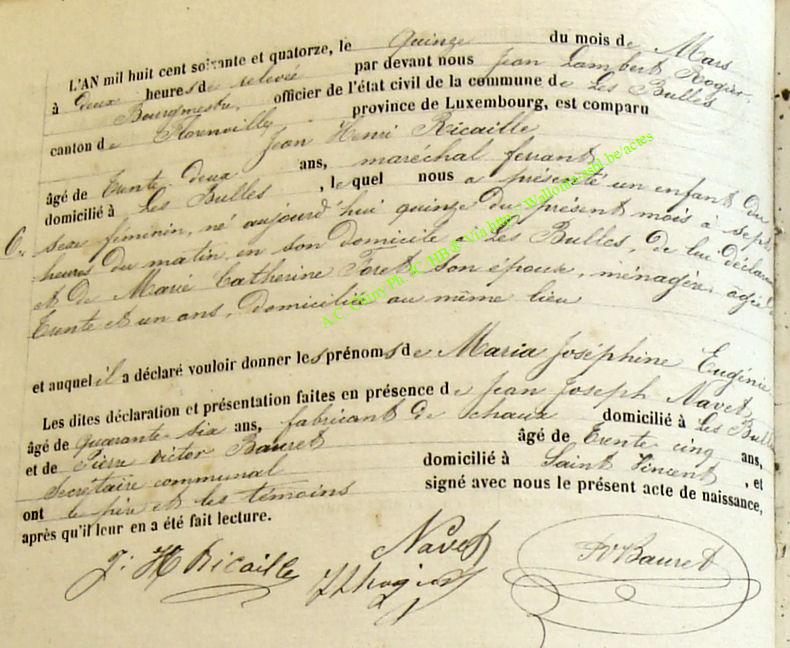 L'AN mil huit cent soixante et quatorze, le quinze du mois de Mars
à deux heures de relevé par devant nous Jean Lambert
Bourgmestre, officier de l'état civil de la commune de Les Bulles
canton de Florenville province de Luxembourg, est comparu
Jean Henri Ricaille
âgé de trente deux ans, maréchal ferrant
domicilié à Les Bulles, lequel nous a présenté un enfant du
sexe féminin, né aujourd'hui quinze du présent mois à sept
heures du matin, en son domicile à Les Bulles, de lui déclarant
et de Marie Catherine Foret son épouse, ménagère, agée de
trente et un ans, domiciliée au même lieu
et auquel il a déclaré vouloir donner les prénoms de Maria Joséphine Eugénie
Les dites déclaration et présentation faites en présence de Jean Joseph Navet
âgé de quarante six ans, fabricant de chaux domicilié à Les Bulles
et de Pierre Victor Bauret âgé de trente cinq ans,
Secrétaire communal domicilié à Saint Vincent, et
ont le père et les témoins signé avec nous le présent acte de naissance,
après qu'il leur en a été fait lecture.
J. H Ricaille Navet Bauret